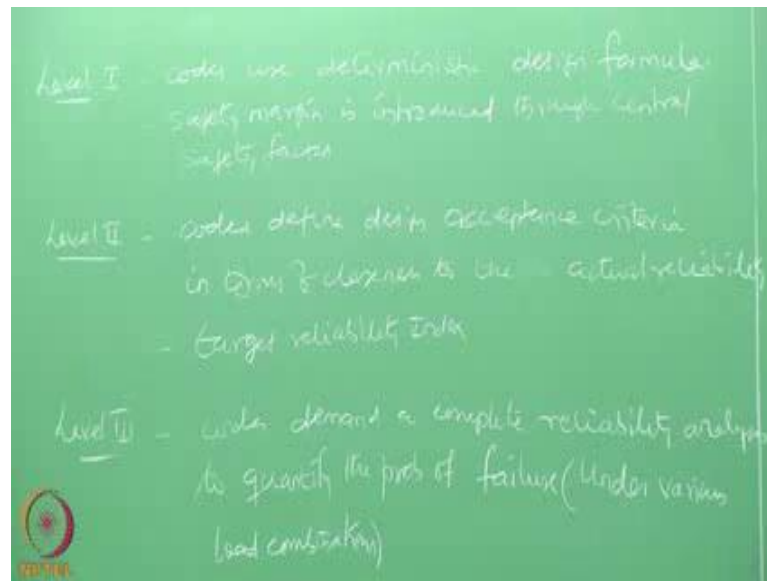 Level I - codes use deterministic design formula
- safety margin is introduced through central
safety factor
Level II - codes define design acceptance criteria
in terms of closeness to the actual reliability
- target reliability Index
Level III - codes demand a complete reliability analysis
to quantify the prob of failure (Under various
load combination)
NPTEL